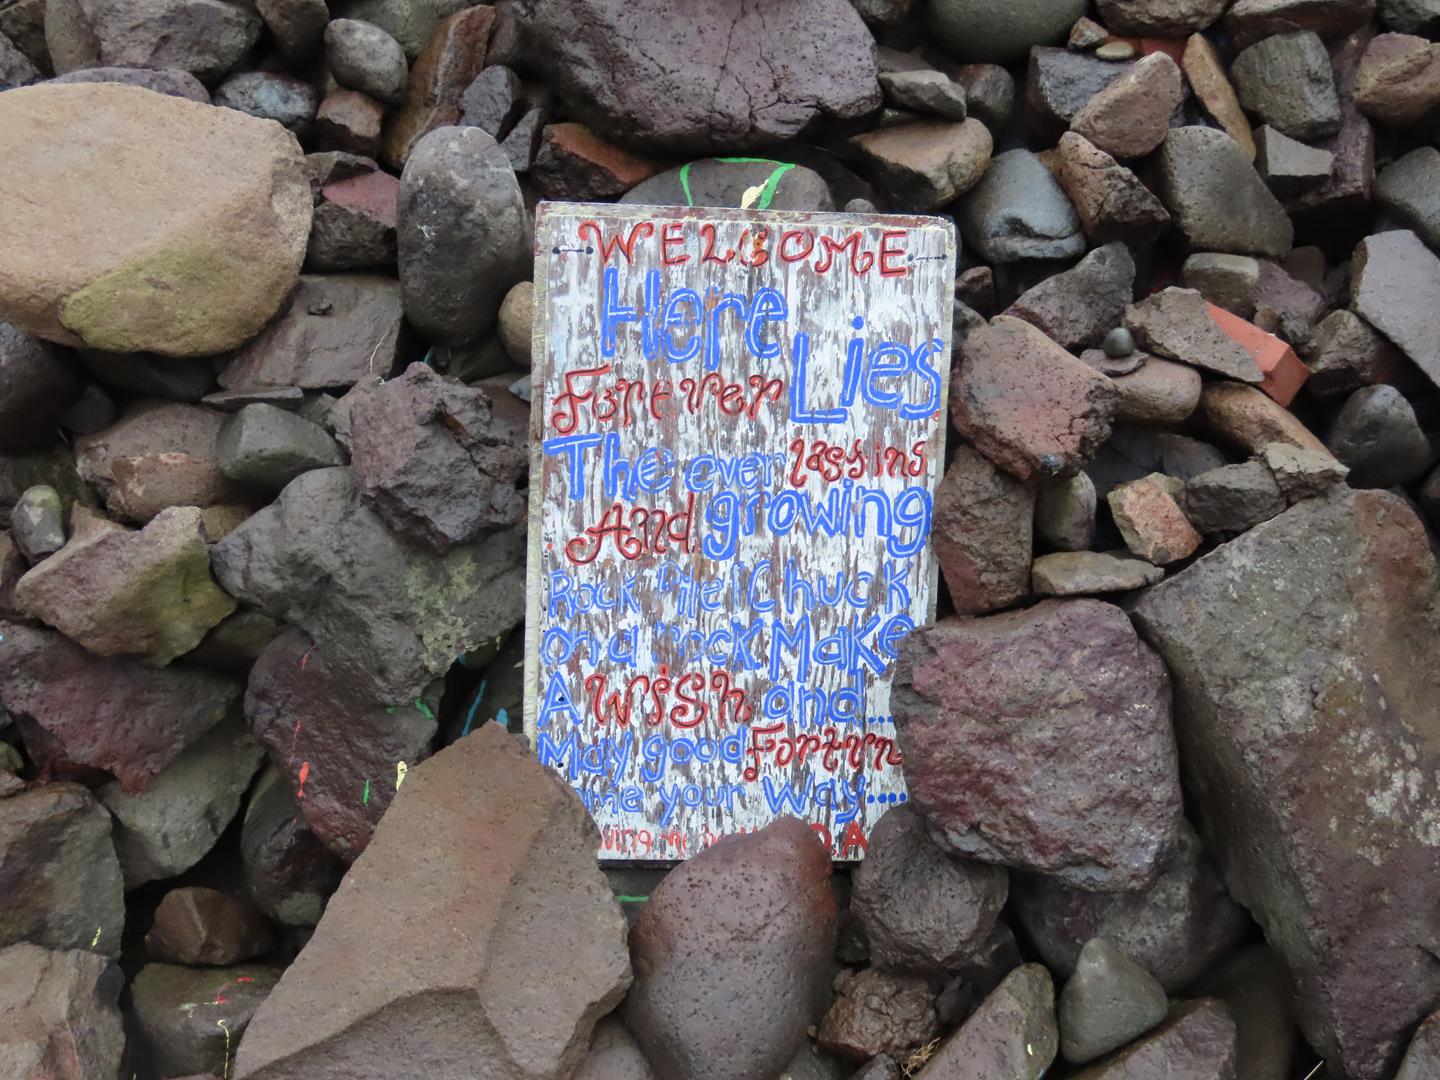 WELCOME
Here Lies
Forever
The ever lasting
And growing
Rock Pile! Chuck
on a rock Make
A Wish and...
May good Fortun
me your Way....